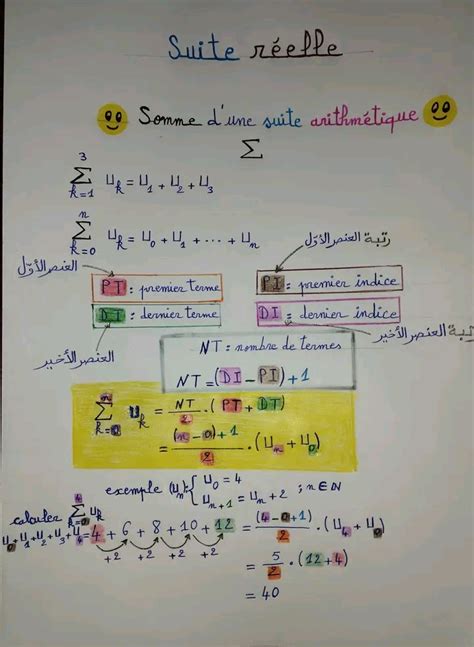 Suite réelle
Somme d'une suite arithmétique
Σ
3
Σ U_k = U_1 + U_2 + U_3
k=1
n
Σ U_k = U_0 + U_1 + ... + U_n
k=0
رتبة العنصر الأول
العنصر الأول
PT : premier terme
PI : premier indice
DT : dernier terme
DI : dernier indice
العنصر الأخير
رتبة العنصر الأخير
NT : nombre de termes
NT = (DI - PI) + 1
n
Σ U_k = NT/2 . (PT + DT)
k=0
= (n - 0) + 1/2 . (U_n + U_0)
exemple (U_n): { U_0 = 4
U_{n+1} = U_n + 2 ; n∈ℕ
calculer 4 Σ U_k k=0
U_0 + U_1 + U_2 + U_3 + U_4 = 4 + 6 + 8 + 10 + 12 = (4 - 0 + 1)/2 . (U_4 + U_0)
+2 +2 +2 +2
= 5/2 . (12 + 4)
= 40